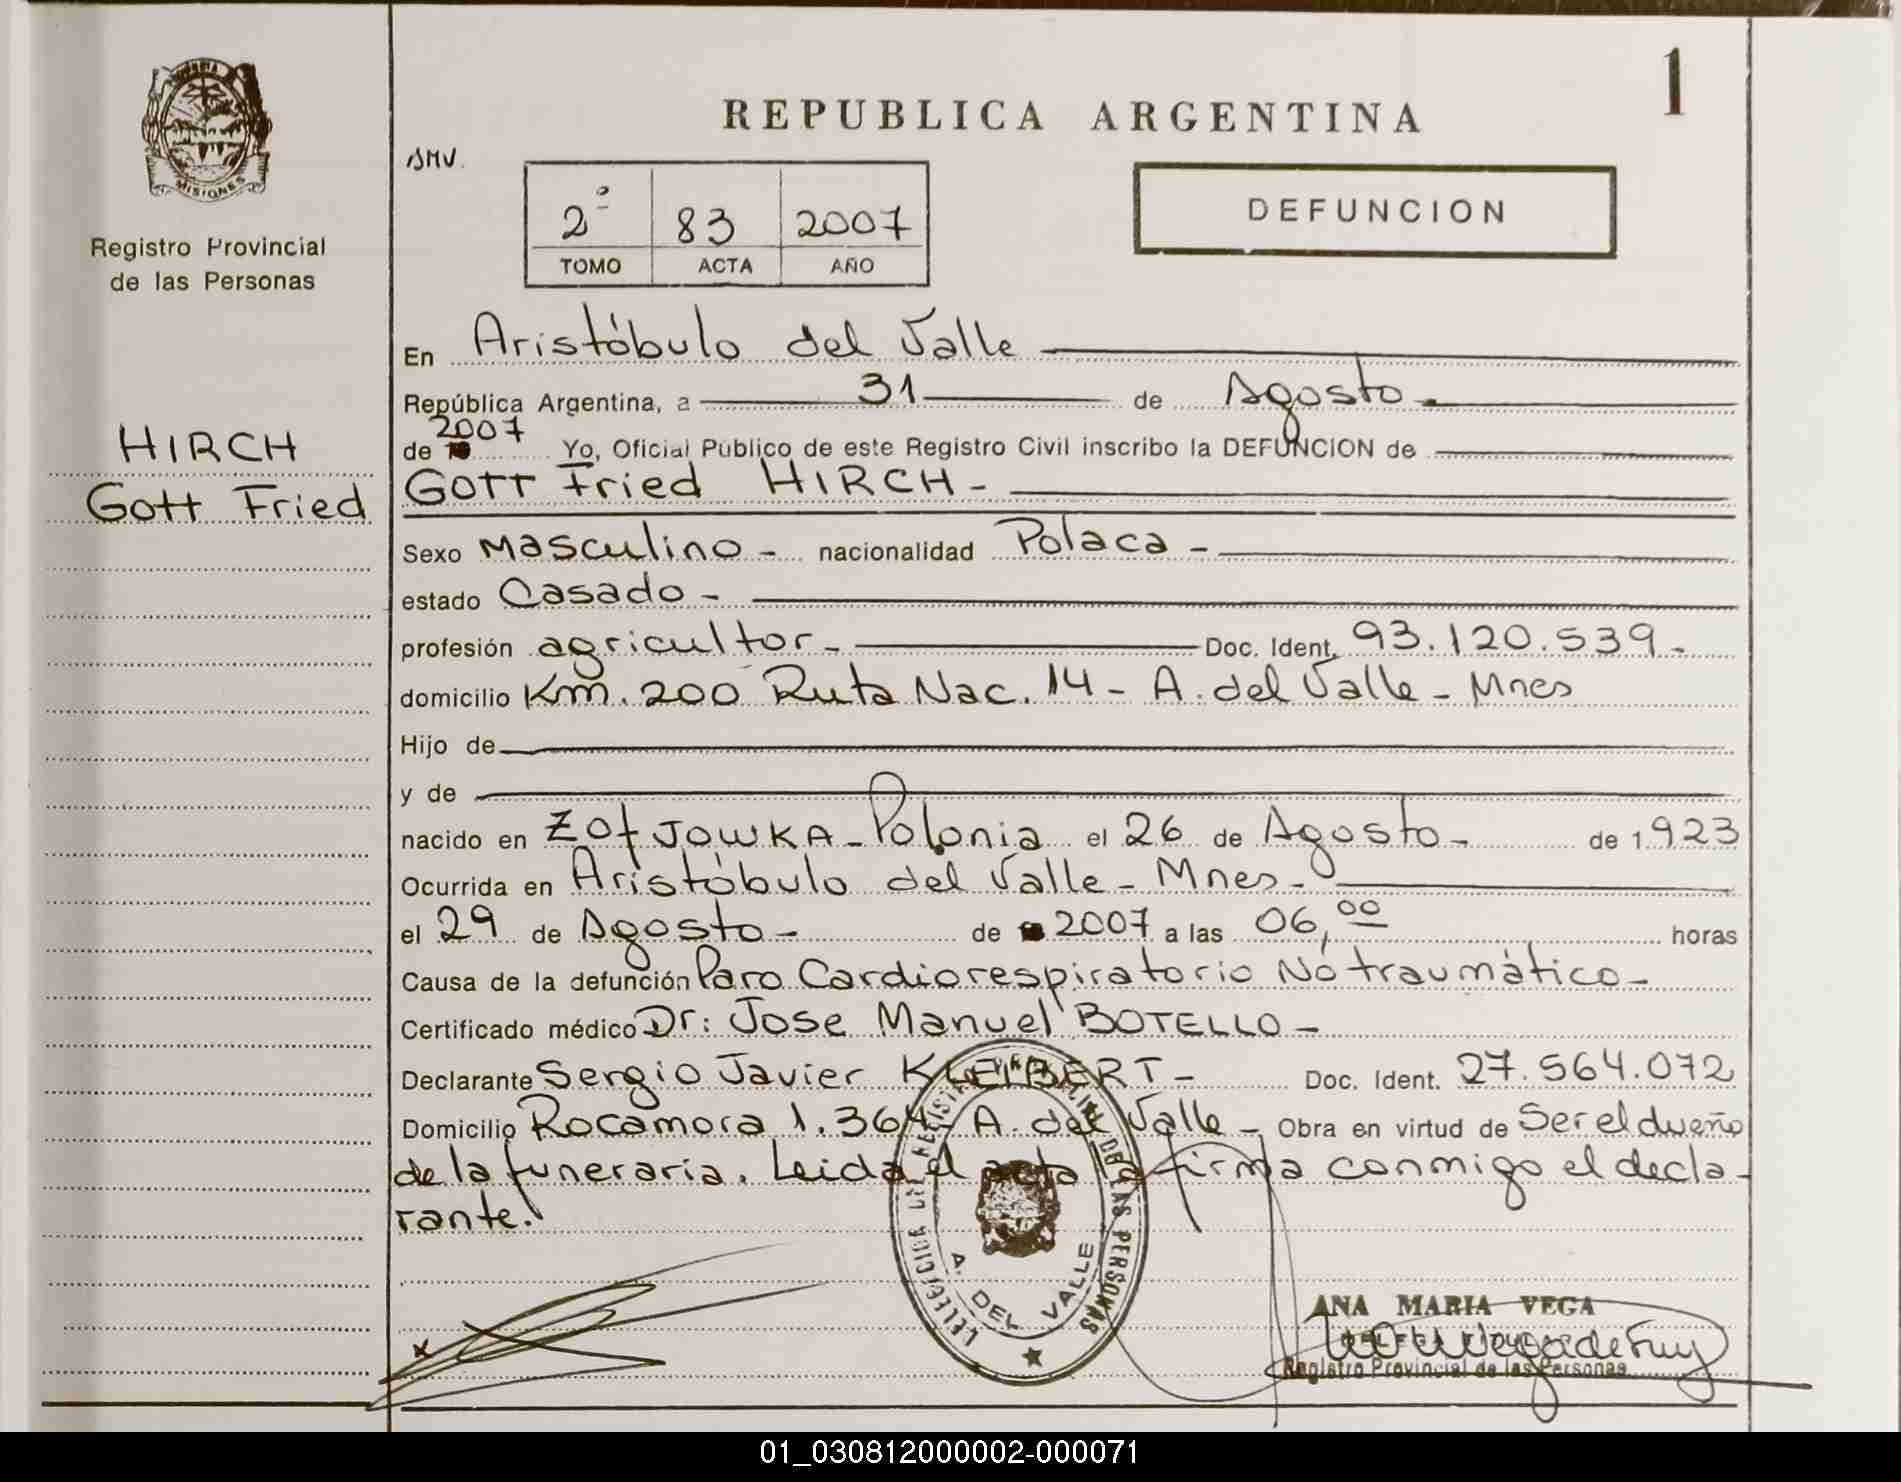 MISIONES
Registro Provincial
de las Personas
HIRCH
Gott Fried
1
REPUBLICA ARGENTINA
SMV.
2º 83 2007
TOMO ACTA AÑO
DEFUNCION
En Aristóbulo del Valle
República Argentina, a 31 de Agosto
de 2007 Yo, Oficial Público de este Registro Civil inscribo la DEFUNCION de
GOTT Fried HIRCH -
Sexo Masculino - nacionalidad Polaca -
estado Casado -
profesión agricultor - Doc. Ident. 93.120.539 -
domicilio Km. 200 Ruta Nac. 14 - A. del Valle - Mnes
Hijo de
y de
nacido en ZOFJOWKA - Polonia el 26 de Agosto - de 1923
Ocurrida en Aristóbulo del Valle - Mnes -
el 29 de Agosto - de 2007 a las 06,00 horas
Causa de la defunción Paro Cardiorespiratorio No traumàtico -
Certificado médico Dr: Jose Manuel BOTELLO -
Declarante Sergio Javier KLEIBERT - Doc. Ident. 27.564.072
Domicilio Rocamora 1.364 A. del Valle - Obra en virtud de Ser el dueño
de la funeraria. Leida el acta firma conmigo el decla-
rante.
A. DEL VALLE
ANA MARIA VEGA
Registro Provincial de las Personas
01_030812000002-000071